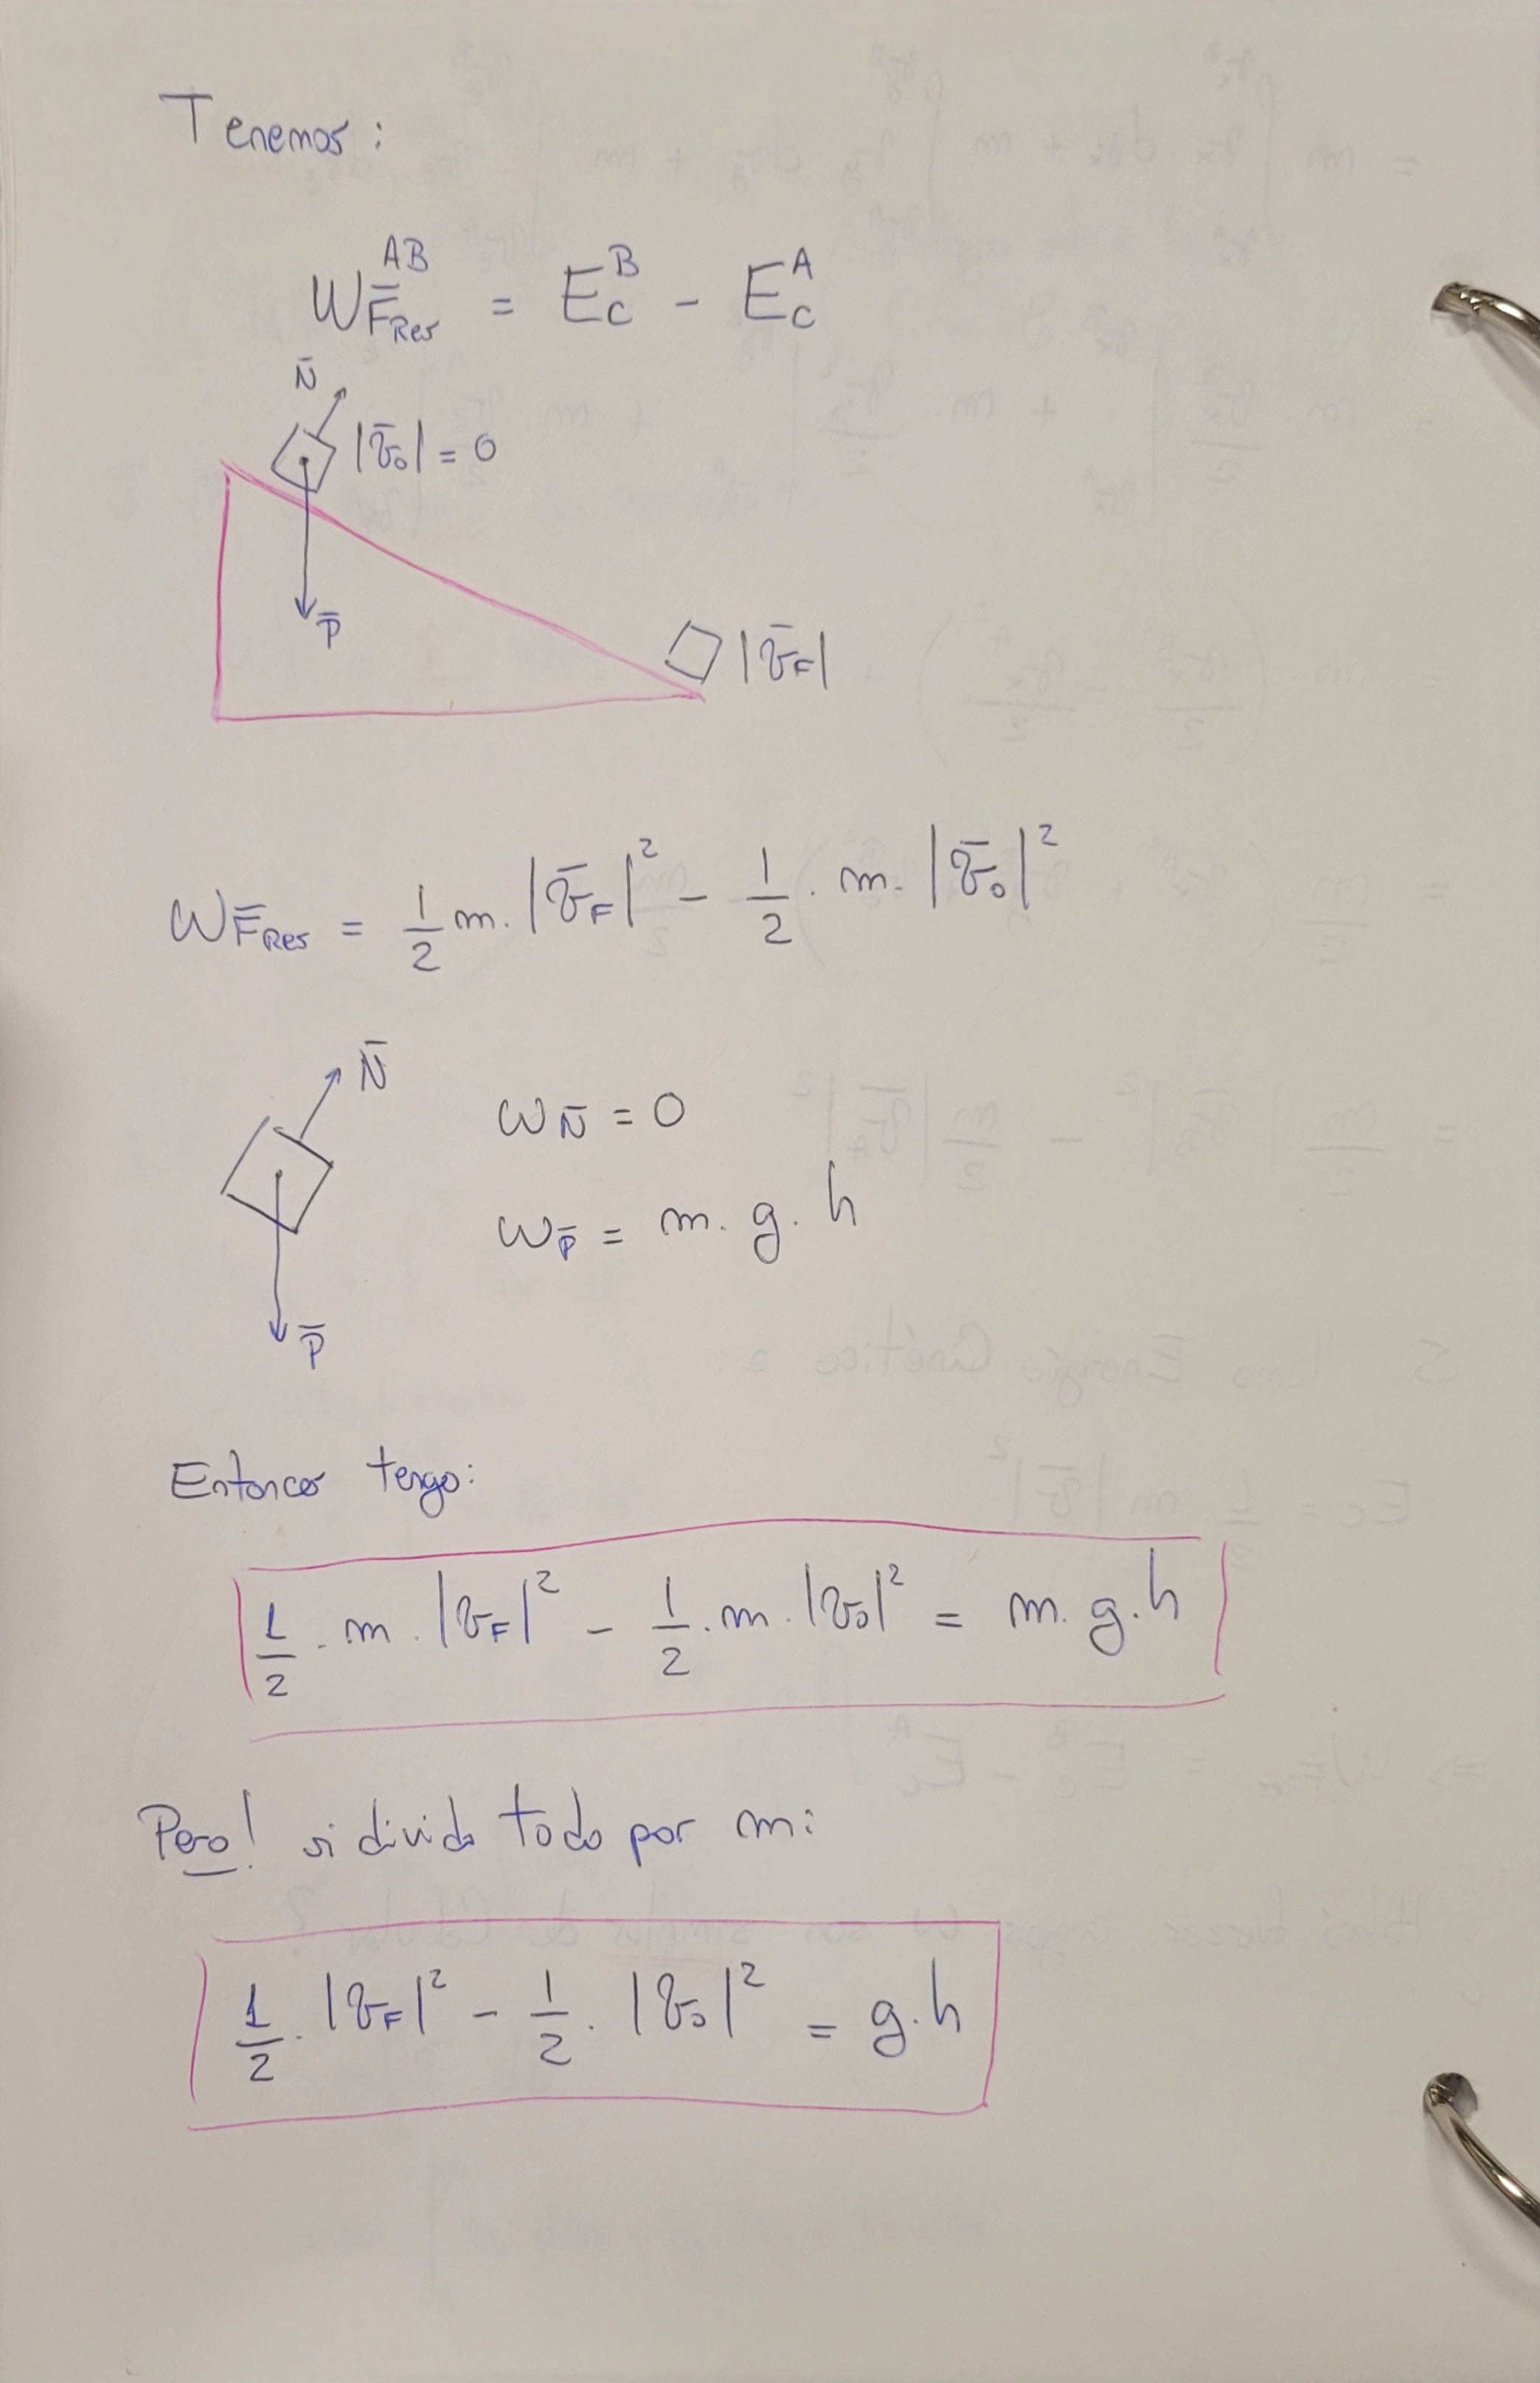 Tenemos:
W_F̄Res^AB = E_C^B - E_C^A
N̄
|v̄₀| = 0
P̄
|v̄_F|
W_F̄Res = 1/2 m. |v̄_F|² - 1/2 . m. |v̄₀|²
N̄
W_N̄ = 0
W_P̄ = m. g. h
P̄
Entonces tengo:
1/2 . m . |v_F|² - 1/2 . m . |v₀|² = m. g. h
Pero! si divido todo por m:
1/2 . |v_F|² - 1/2 . |v₀|² = g. h